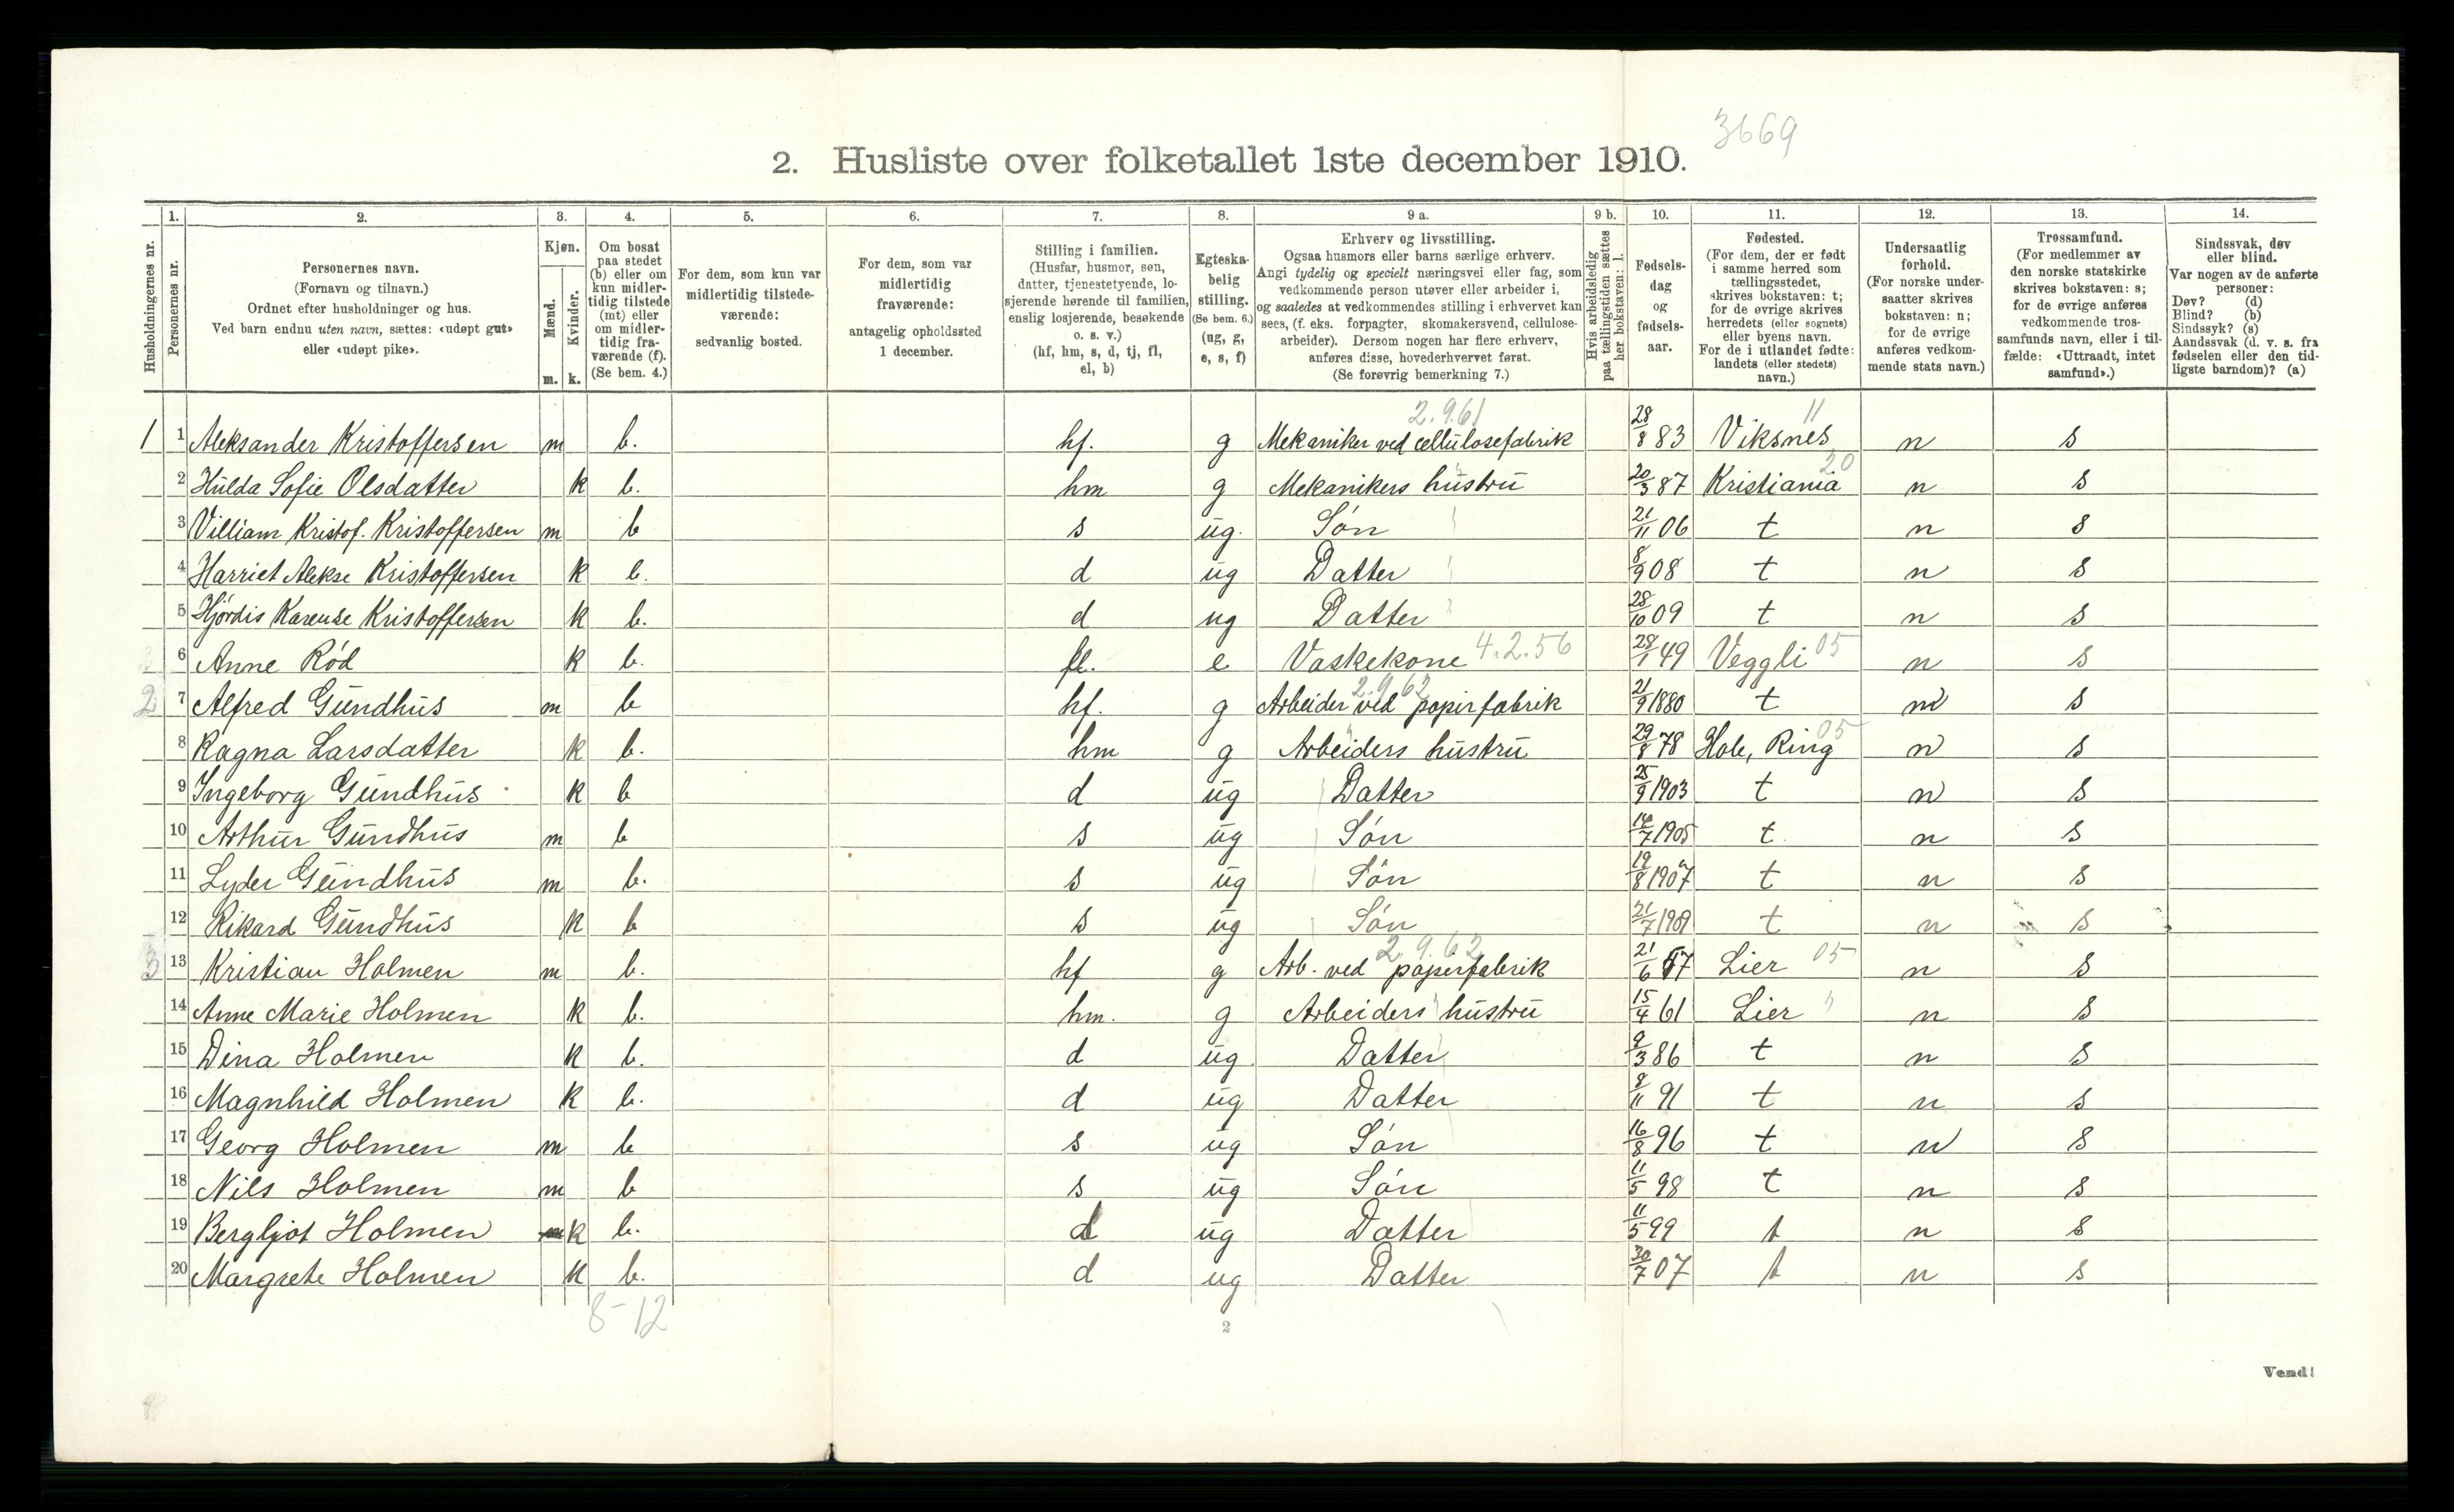 3669
2. Husliste over folketallet 1ste december 1910.
Husholdningernes nr.
1.
Personernes nr.
2.
Personernes navn.
(Fornavn og tilnavn.)
Ordnet efter husholdninger og hus.
Ved barn endnu uten navn, sættes: «udøpt gut»
eller «udøpt pike».
3.
Kjøn.
Mænd.
Kvinder.
m. k.
4.
Om bosat
paa stedet
(b) eller om
kun midler-
tidig tilstede
(mt) eller
om midler-
tidig fra-
værende (f).
(Se bem. 4.)
5.
For dem, som kun var
midlertidig tilstede-
værende:
sedvanlig bosted.
6.
For dem, som var
midlertidig
fraværende:
antagelig opholdssted
1 december.
7.
Stilling i familien.
(Husfar, husmor, søn,
datter, tjenestetyende, lo-
sjerende hørende til familien,
enslig losjerende, besøkende
o. s. v.)
(hf, hm, s, d, tj, fl,
el, b)
8.
Egteska-
belig
stilling.
(Se bem. 6.)
(ug, g,
e, s, f)
9 a.
Erhverv og livsstilling.
Ogsaa husmors eller barns særlige erhverv.
Angi tydelig og specielt næringsvei eller fag, som
vedkommende person utøver eller arbeider i,
og saaledes at vedkommendes stilling i erhvervet kan
sees, (f. eks. forpagter, skomakersvend, cellulose-
arbeider). Dersom nogen har flere erhverv,
anføres disse, hovederhvervet først.
(Se forøvrig bemerkning 7.)
9 b.
Hvis arbeidsledig
paa tællingstiden sættes
her bokstaven: l.
10.
Fødsels-
dag
og
fødsels-
aar.
11.
Fødested.
(For dem, der er født
i samme herred som
tællingsstedet,
skrives bokstaven: t;
for de øvrige skrives
herredets (eller sognets)
eller byens navn.
For de i utlandet fødte:
landets (eller stedets)
navn.)
12.
Undersaatlig
forhold.
(For norske under-
saatter skrives
bokstaven: n;
for de øvrige
anføres vedkom-
mende stats navn.)
13.
Trossamfund.
(For medlemmer av
den norske statskirke
skrives bokstaven: s;
for de øvrige anføres
vedkommende tros-
samfunds navn, eller i til-
fælde: «Uttraadt, intet
samfund».)
14.
Sindssvak, døv
eller blind.
Var nogen av de anførte
personer:
Døv? (d)
Blind? (b)
Sindssyk? (s)
Aandssvak (d. v. s. fra
fødselen eller den tid-
ligste barndom)? (a)
2.9.61 11
1 1 Aleksander Kristoffersen m b. hf. g Mekaniker ved cellulosefabrik 28/8 83 Viksnes n s
20
2 Hulda Sofie Olsdatter k b. hm g Mekanikers hustru 20/3 87 Kristiania n s
3 Villiam Kristof. Kristoffersen m b s ug. Søn 21/11 06 t n s
4 Harriet Alekse Kristoffersen k b. d ug Datter 8/9 08 t n s
5 Hjørdis Karense Kristoffersen k b. d ug Datter 28/10 09 t n s
6 Anne Rød k b. fl. e Vaskekone 4.2.56 28/1 49 Veggli 05 n s
2.9.62
2 7 Alfred Gundhus m b hf. g Arbeider ved papirfabrik 21/9 1880 t n s
05
8 Ragna Larsdatter k b. hm g Arbeiders hustru 29/8 78 Hole, Ring n s
9 Ingeborg Gundhus k b d ug Datter 25/9 1903 t n s
10 Arthur Gundhus m b s ug Søn 14/7 1905 t n s
11 Lyder Gundhus m b. s ug Søn 19/8 1907 t n s
12 Rikard Gundhus k b s ug Søn 21/7 1909 t n s
2.9.62
3 13 Kristian Holmen m b. hf g Arb. ved papirfabrik 21/6 57 Lier 05 n s
14 Anne Marie Holmen k b. hm. g Arbeiders hustru 15/4 61 Lier " n s
15 Dina Holmen k b. d ug. Datter 9/3 86 t n s
16 Magnhild Holmen k b. d ug Datter 8/11 91 t n s
17 Georg Holmen m b s ug Søn 16/8 96 t n s
18 Nils Holmen m b s ug Søn 11/5 98 t n s
19 Bergljot Holmen m k b. d ug Datter 11/5 99 t n s
20 Margrete Holmen k b. d ug Datter 30/7 07 t n s
8-12
2
Vend!